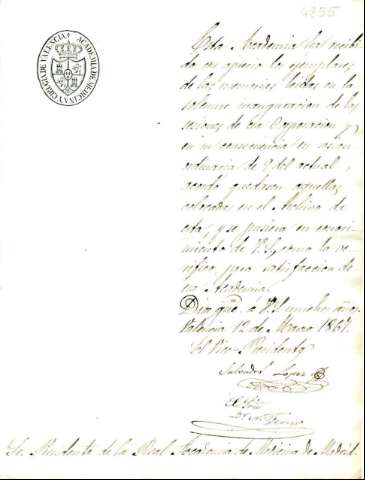 4355
ACADEMIA DE MEDICINA Y CIRUGIA DE VALENCIA
Esta Academia ha recibido
con aprecio los ejemplares
de las memorias leidas en la
solemne inauguracion de las
sesiones de esa Corporacion y
en su consecuencia en sesion
ordinaria de 9 del actual,
acordó quedasen aquellas
colocadas en el Archivo de
esta, y se pusiera en conoci-
miento de V.S. como lo ve-
rifico, para satisfaccion de
esa Academia.
Dios gue. á V.S. muchos años.
Valencia 12 de Marzo 1867.
El Vice-Presidente
Salvador Lopez
El Srio
Sr. Presidente de la Real Academia de Medicina de Madrid.